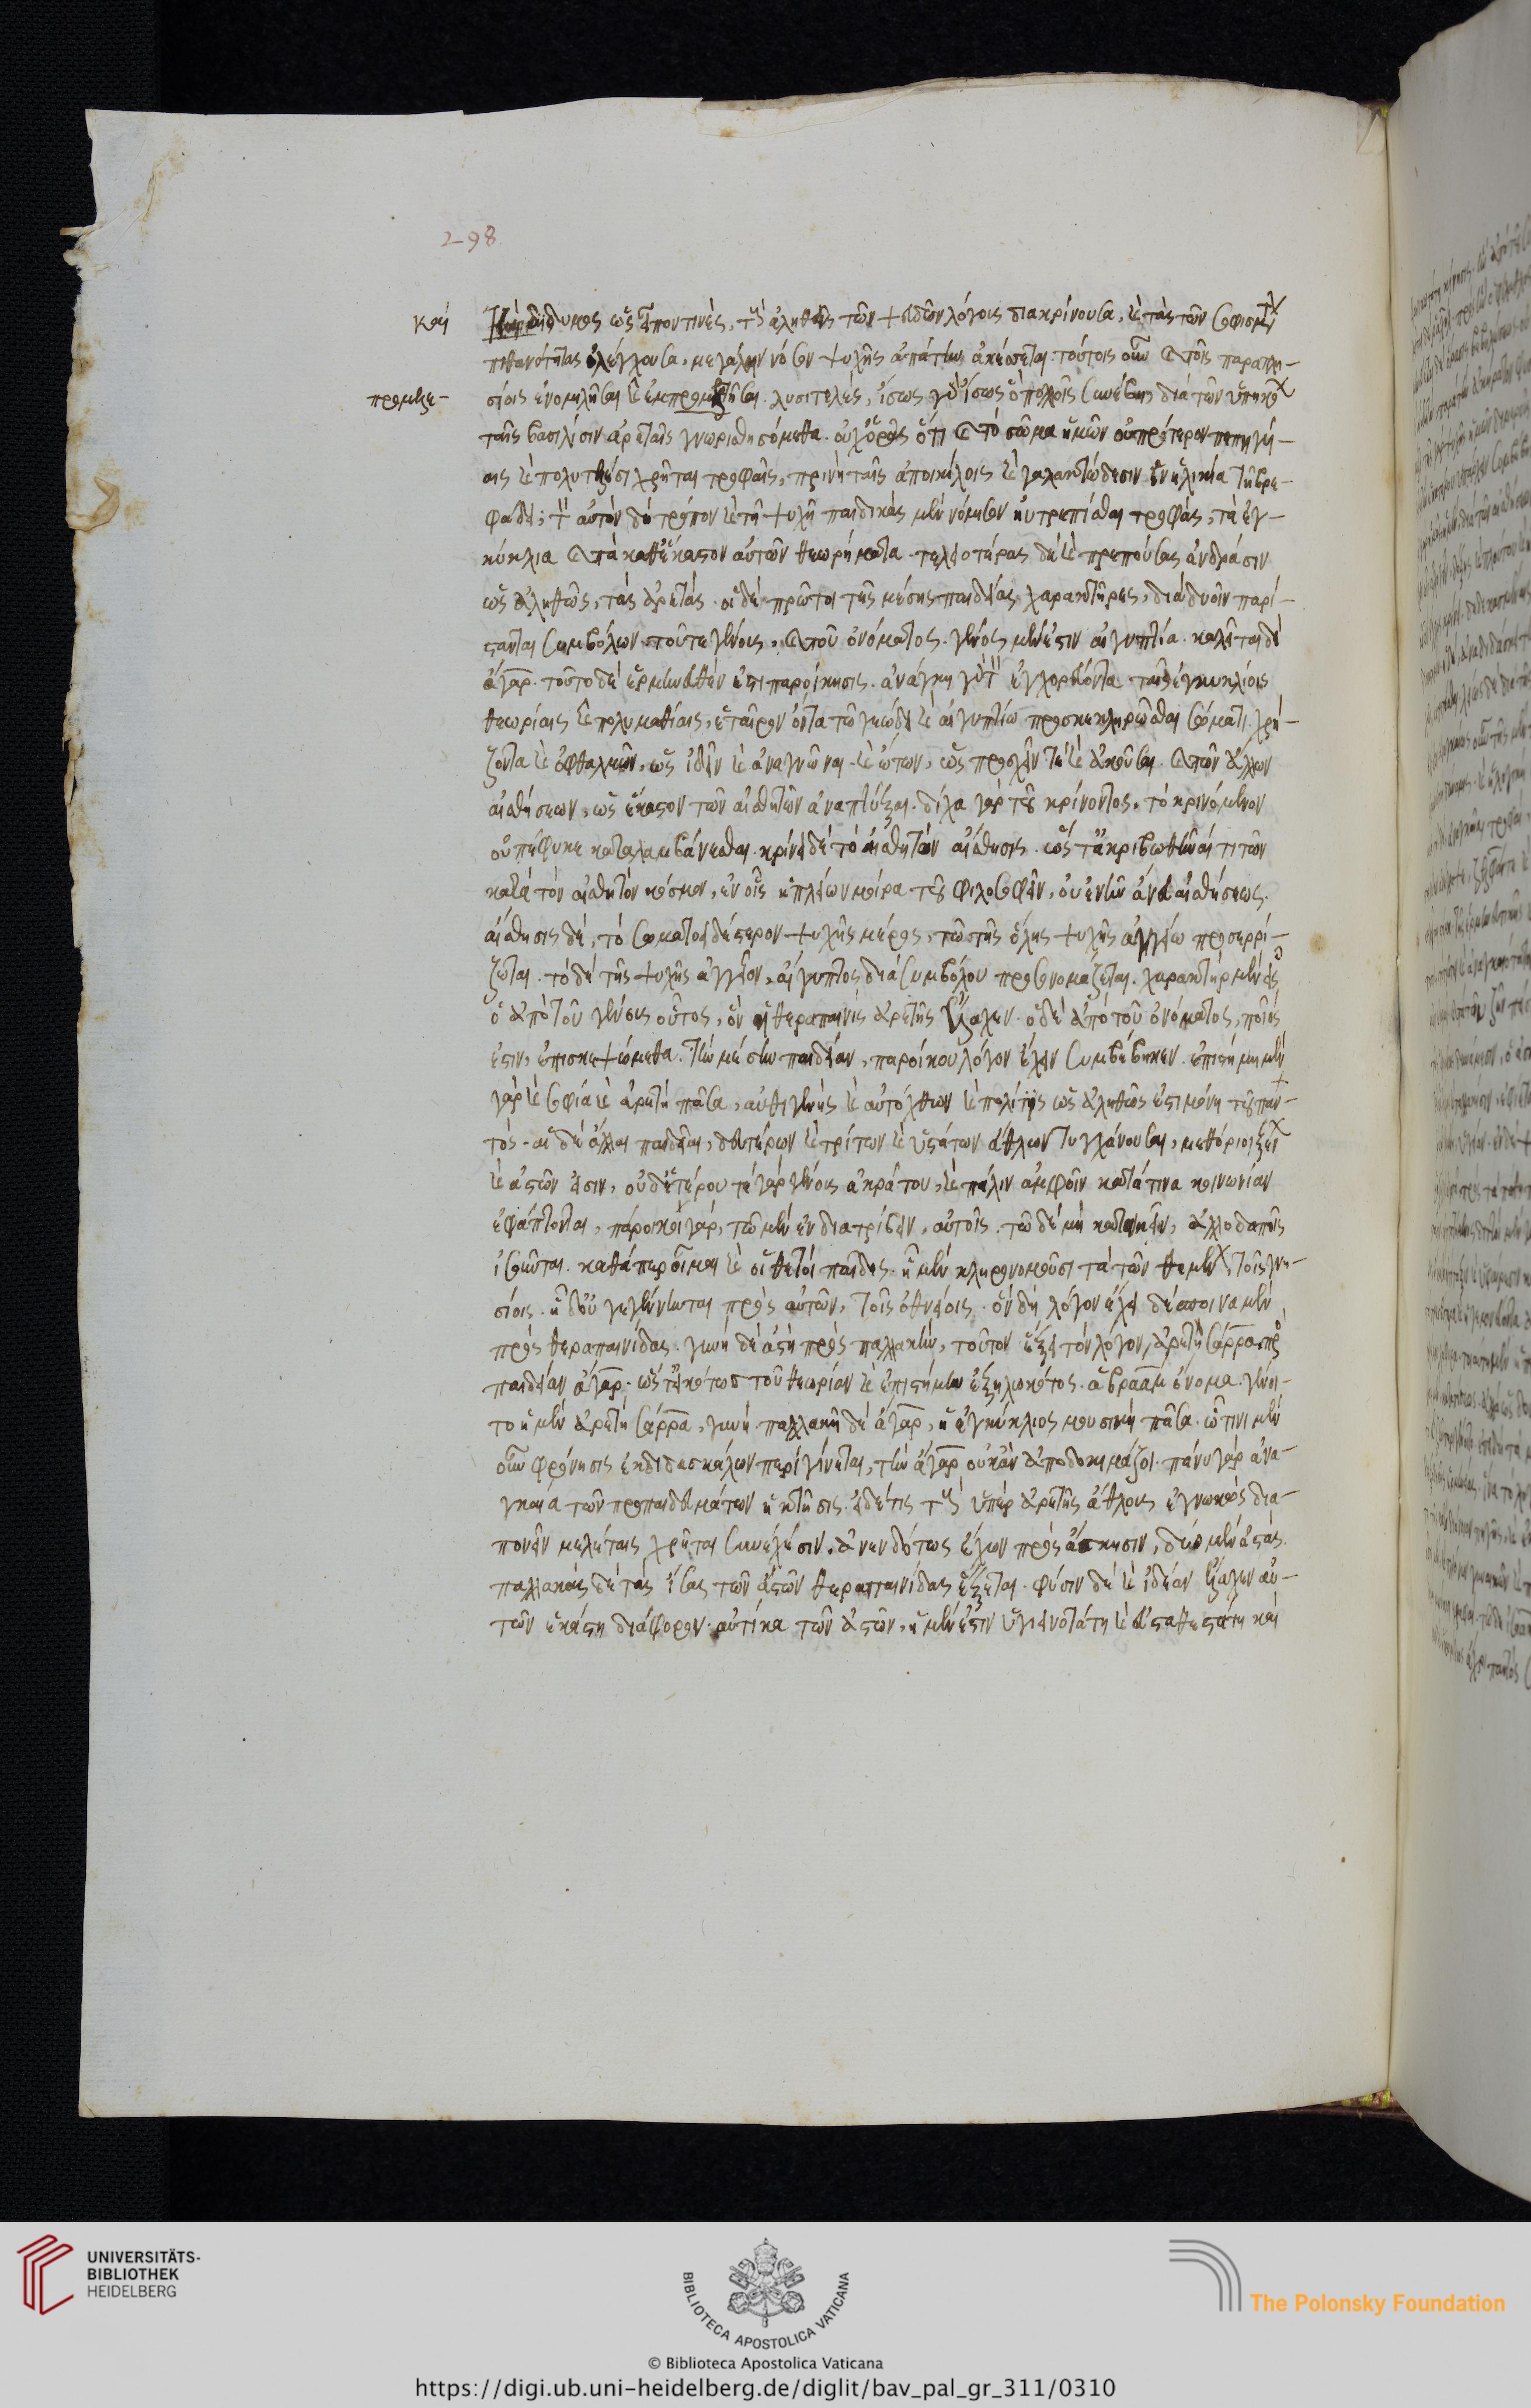 298
καὶ
Καὶ δίδυμος ὡς εἶπόν τινες, τοὺς ἀληθεῖς τῶν ψευδῶν λόγους διακρίνουσα, καὶ τὰς τῶν σοφισμάτων
πιθανότητας ἐλέγχουσα, μεγάλην νόσον ψυχῆς ἀπάτην ἀκέσεται. τούτοις οὖν καὶ τοῖς παραπλη-
προμελε-
σίοις ἐνομιλῆσαι καὶ ἐμπρομελετῆσαι λυσιτελές, ἴσως γὰρ ἴσως ὃ πολλοῖς συνέβη, διὰ τῶν ὑπηκόων
ταῖς βασιλίσιν ἀρεταῖς γνωρισθησόμεθα. οὐχ ὁρᾷς ὅτι καὶ τὸ σῶμα ἡμῶν οὐ πρότερον πεπηγυί-
αις καὶ πολυτελέσι χρῆται τροφαῖς, πρινὴ ταῖς ἀποικίλοις καὶ γαλακτώδεσιν ἐν ἡλικία τῇ βρε-
φώδει; τὸν αὐτὸν δὴ τρόπον καὶ τῇ ψυχῇ παιδικὰς μὲν νόμισον ηὐτρεπίσθαι τροφάς, τὰ ἐγ-
κύκλια καὶ τὰ καθ' ἕκαστον αὐτῶν θεωρήματα. τελειοτέρας δὲ καὶ πρεπούσας ἀνδράσιν
ὡς ἀληθῶς, τὰς ἀρετάς. οἱ δὲ πρῶτοι τῆς μέσης παιδείας χαρακτῆρες, διὰ δυοῖν παρί-
στανται συμβόλων τοῦτε γένους, καὶ τοῦ ὀνόματος. γένος μὲν ἐστιν αἰγυπτία. καλεῖται δὲ
ἄγαρ. τοῦτο δὲ ἑρμηνευθὲν ἐστι παροίκησις. ἀνάγκη γὰρ τὸν ἐγχορεύοντα ταῖς ἐγκυκλίοις
θεωρίαις καὶ πολυμαθίαις, ἑταῖρον ὄντα τῷ γεώδει καὶ αἰγυπτίῳ προσκεκληρῶσθαι σώματι. χρῄ-
ζοντα καὶ ὀφθαλμῶν, ὡς ἰδεῖν καὶ ἀναγνῶναι. καὶ ὤτων, ὡς προσχεῖν τε καὶ ἀκοῦσαι. καὶ τῶν ἄλλων
αἰσθήσεων, ὡς ἕκαστον τῶν αἰσθητῶν ἀναπτύξαι. δίχα γὰρ τοῦ κρίνοντος, τὸ κρινόμενον
οὐ πέφυκε καταλαμβάνεσθαι. κρίνει δὲ τὸ αἰσθητὸν αἴσθησις. ὥστ' ἀκριβωθῆναί τι τῶν
κατὰ τὸν αἰσθητὸν κόσμον, ἐν οἷς ἡ πλείων μοίρα τοῦ φιλοσοφεῖν, οὐκ ἐνῆν ἄνευ αἰσθήσεως.
αἴσθησις δέ, τὸ σωματοειδέστερον ψυχῆς μέρος, τῷ τῆς ὅλης ψυχῆς ἀγγείῳ προσερρί-
ζωται. τὸ δὲ τῆς ψυχῆς ἀγγεῖον, αἴγυπτος διὰ συμβόλου προσονομάζεται. χαρακτὴρ μὲν εἷς
ὁ ἀπὸ τοῦ γένους οὗτος, ὃν ἡ θεραπαινὶς ἀρετῆς ἔλαχεν. ὁ δὲ ἀπὸ τοῦ ὀνόματος, ποῖός
ἐστιν, ἐπισκεψώμεθα. τὴν μέσην παιδείαν, παροίκου λόγον ἔχειν συμβέβηκεν. ἐπιστήμη μὲν
γὰρ καὶ σοφία καὶ ἀρετὴ πᾶσα, αὐθιγενὴς καὶ αὐτόχθων καὶ πολίτις ὡς ἀληθῶς ἐστι μόνη τοῦ παν-
τός. αἱ δὲ ἄλλαι παιδεῖαι, δευτέρων καὶ τρίτων καὶ ὑστάτων ἄθλων τυγχάνουσαι, μεθόριοι ξένων
καὶ ἀστῶν εἰσιν, οὐδετέρου τε γὰρ γένους ἀκράτου, καὶ πάλιν ἀμφοῖν κατά τινα κοινωνίαν
ἐφάπτονται, πάροικοι γάρ, τῷ μὲν ἐνδιατρίβειν, αὐτοῖς. τῷ δὲ μὴ κατοικεῖν, ἀλλοδαποῖς
ἰσοῦται. καθάπερ οἶμαι καὶ οἱ θετοὶ παῖδες. ᾗ μὲν κληρονομοῦσι τὰ τῶν θεμένων, τοῖς γνη-
σίοις. ᾗ δ' οὐ γεγέννηνται πρὸς αὐτῶν, τοῖς ὀθνείοις. ὃν δὴ λόγον ἔχει δέσποινα μὲν
πρὸς θεραπαινίδας. γυνὴ δὲ ἀστὴ πρὸς παλλακήν, τοῦτον ἕξει τὸν λόγον, ἀρετὴ σάρρα πρὸς
παιδείαν ἄγαρ. ὥστ' εἰκότως τοῦ θεωρίαν καὶ ἐπιστήμην ἐζηλωκότος. ἀβραὰμ ὄνομα. γένοι-
το ἡ μὲν ἀρετὴ σάρρα, γυνή. παλλακὴ δὲ ἄγαρ, ἡ ἐγκύκλιος μουσικὴ πᾶσα. ὧτινι μὲν
οὖν φρόνησις ἐκ διδασκάλων περιγίνεται, τὴν ἄγαρ οὐκ ἂν ἀποδοκιμάζοι. πάνυ γὰρ ἀνα-
γκαία τῶν προπαιδευμάτων ἡ κτῆσις. εἰ δέ τις τοὺς ὑπὲρ ἀρετῆς ἄθλους ἐγνωκὼς δια-
πονεῖν μελέταις χρῆται συνεχέσιν, ἀνενδότως ἔχων πρὸς ἄσκησιν, δύο μὲν ἀστάς.
παλλακὰς δὲ τὰς ἴσας τῶν ἀστῶν θεραπαινίδας ἕξεται. φύσιν δὲ καὶ ἰδέαν ἔλαχεν αὐ-
τῶν ἑκάστη διάφορον. αὐτίκα τῶν ἀστῶν, ἡ μὲν ἐστιν ὑγιεινοτάτη καὶ εὐσταθεστάτη καὶ
UNIVERSITÄTS-
BIBLIOTHEK
HEIDELBERG
BIBLIOTECA APOSTOLICA VATICANA
The Polonsky Foundation
© Biblioteca Apostolica Vaticana
https://digi.ub.uni-heidelberg.de/diglit/bav_pal_gr_311/0310